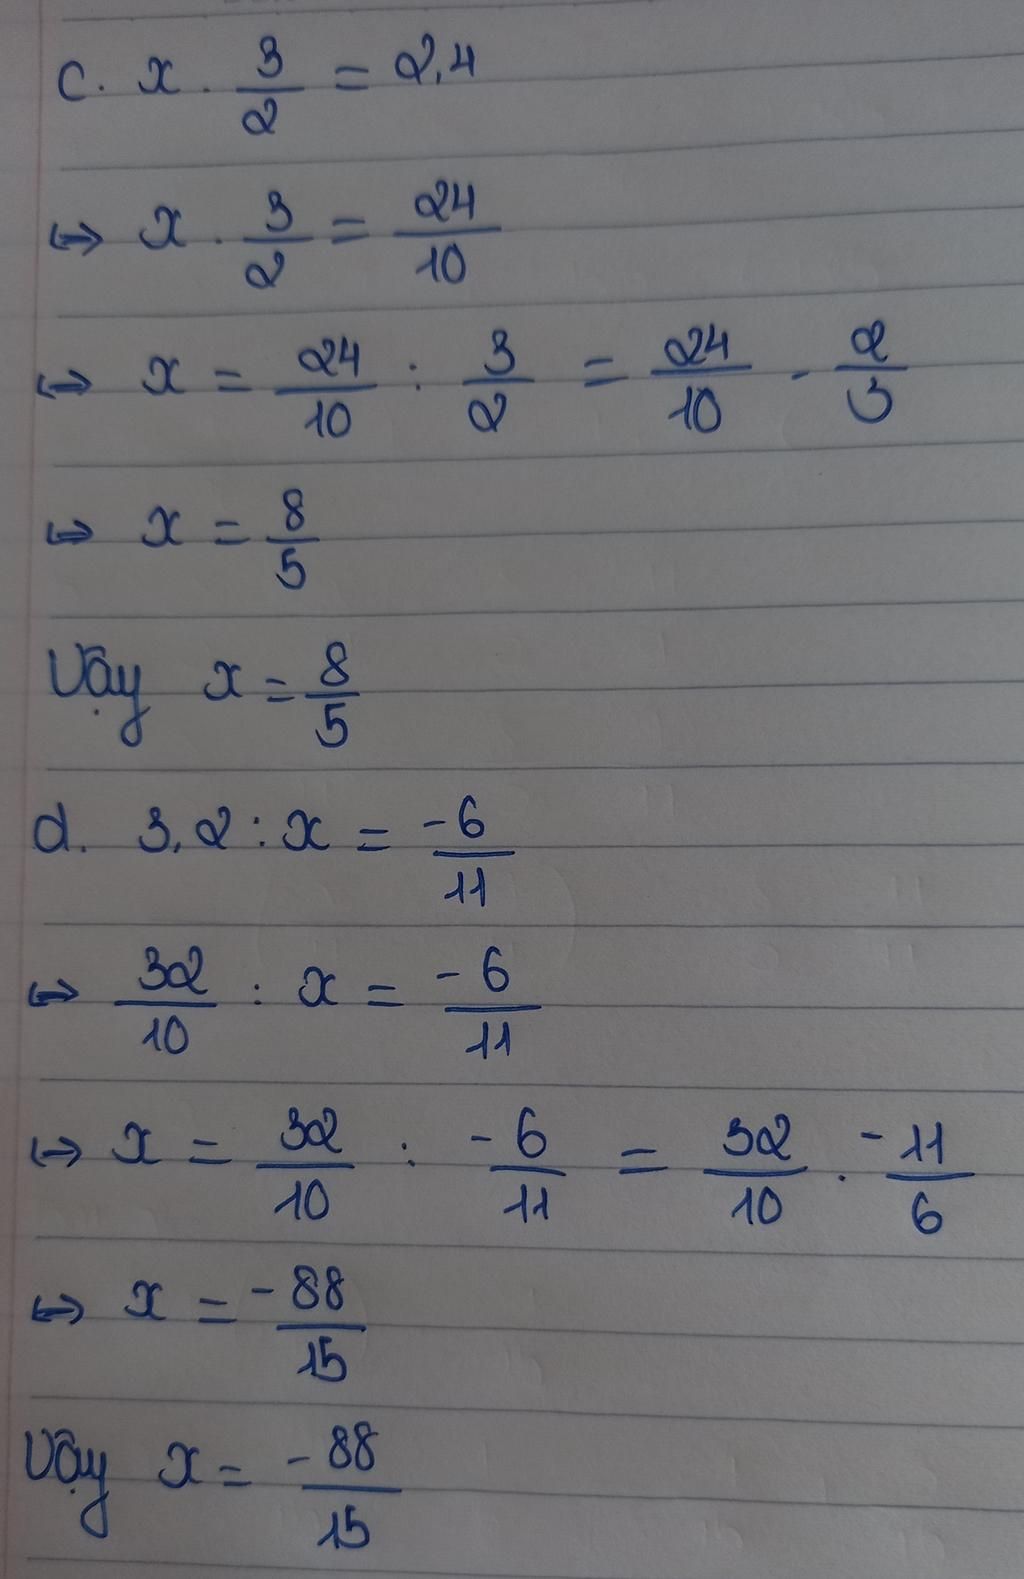 c. x . 3/2 = 2,4
⇔ x . 3/2 = 24/10
⇔ x = 24/10 : 3/2 = 24/10 . 2/3
⇔ x = 8/5
Vậy x = 8/5
d. 3,2 : x = -6/11
⇔ 32/10 : x = -6/11
⇔ x = 32/10 : -6/11 = 32/10 . -11/6
⇔ x = -88/15
Vậy x = -88/15